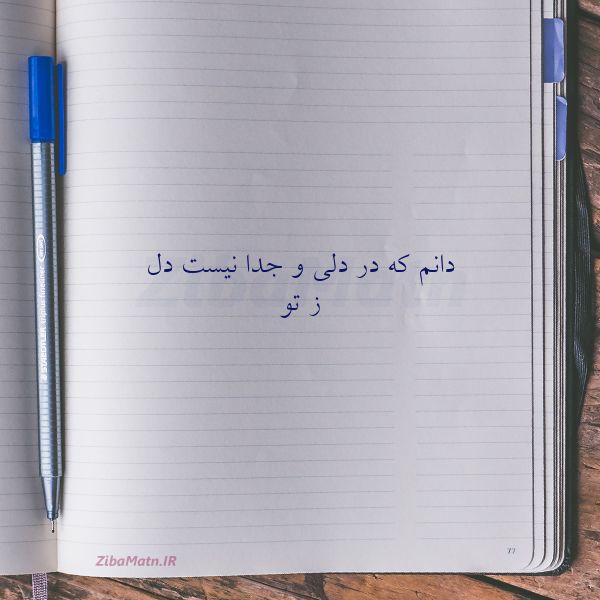 دانم که در دلی و جدا نیست دل
ز تو
ZibaMatn.IR
77